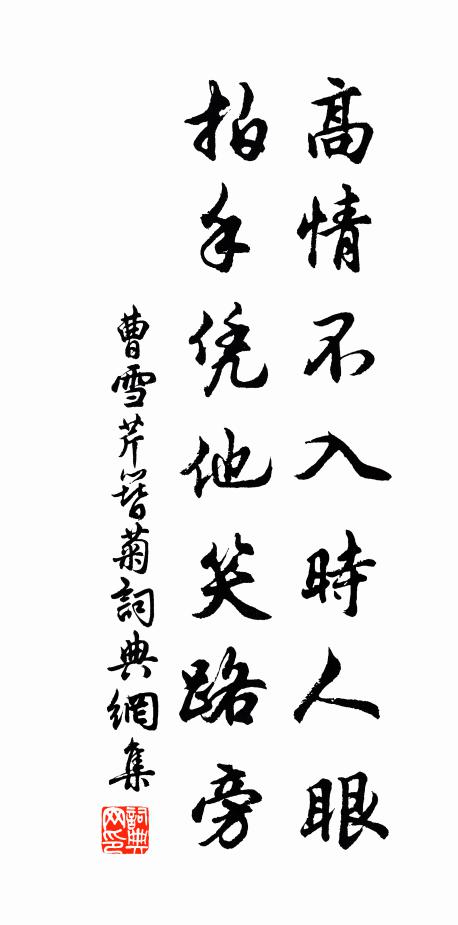 高情不入時人眼
拍手凭他笑路旁
曹雪芹簪菊詞典網集
詞典網印